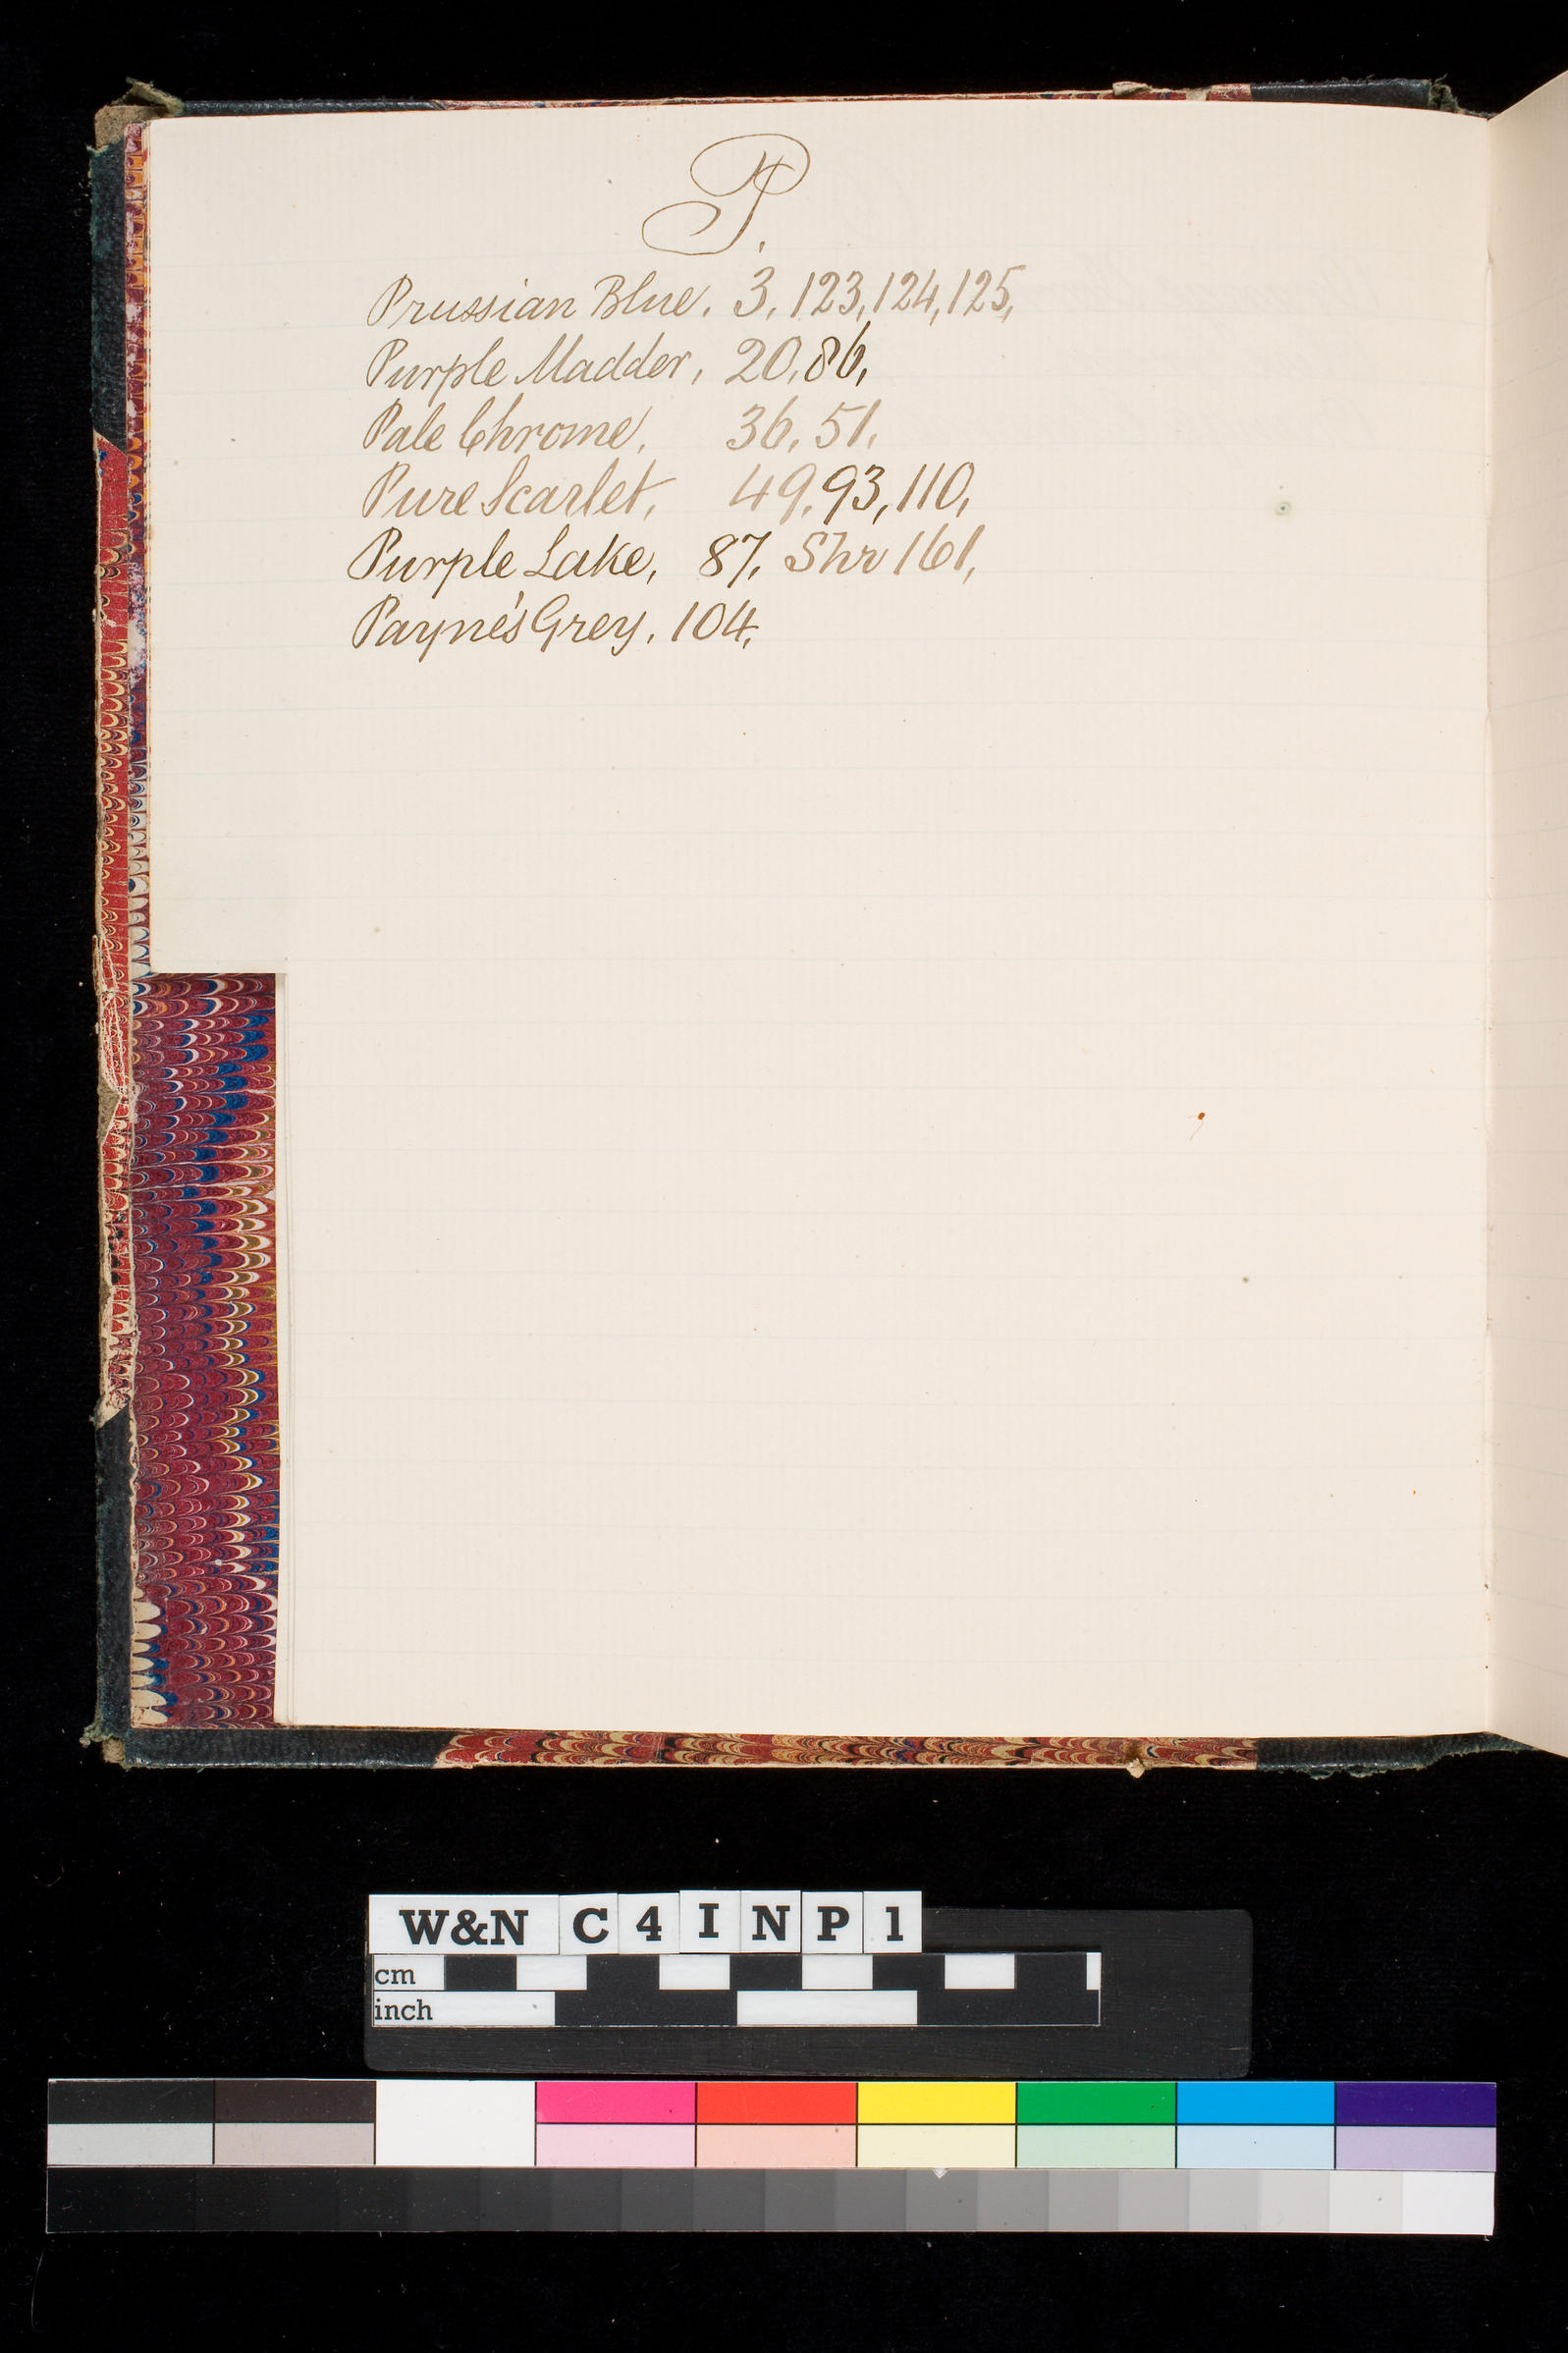 P.
Prussian Blue. 3, 123, 124, 125,
Purple Madder, 20, 86,
Pale Chrome, 36, 51,
Pure Scarlet, 49, 93, 110,
Purple Lake, 87, Shr 161,
Payne's Grey, 104,
W&N C 4 I N P 1
cm
inch